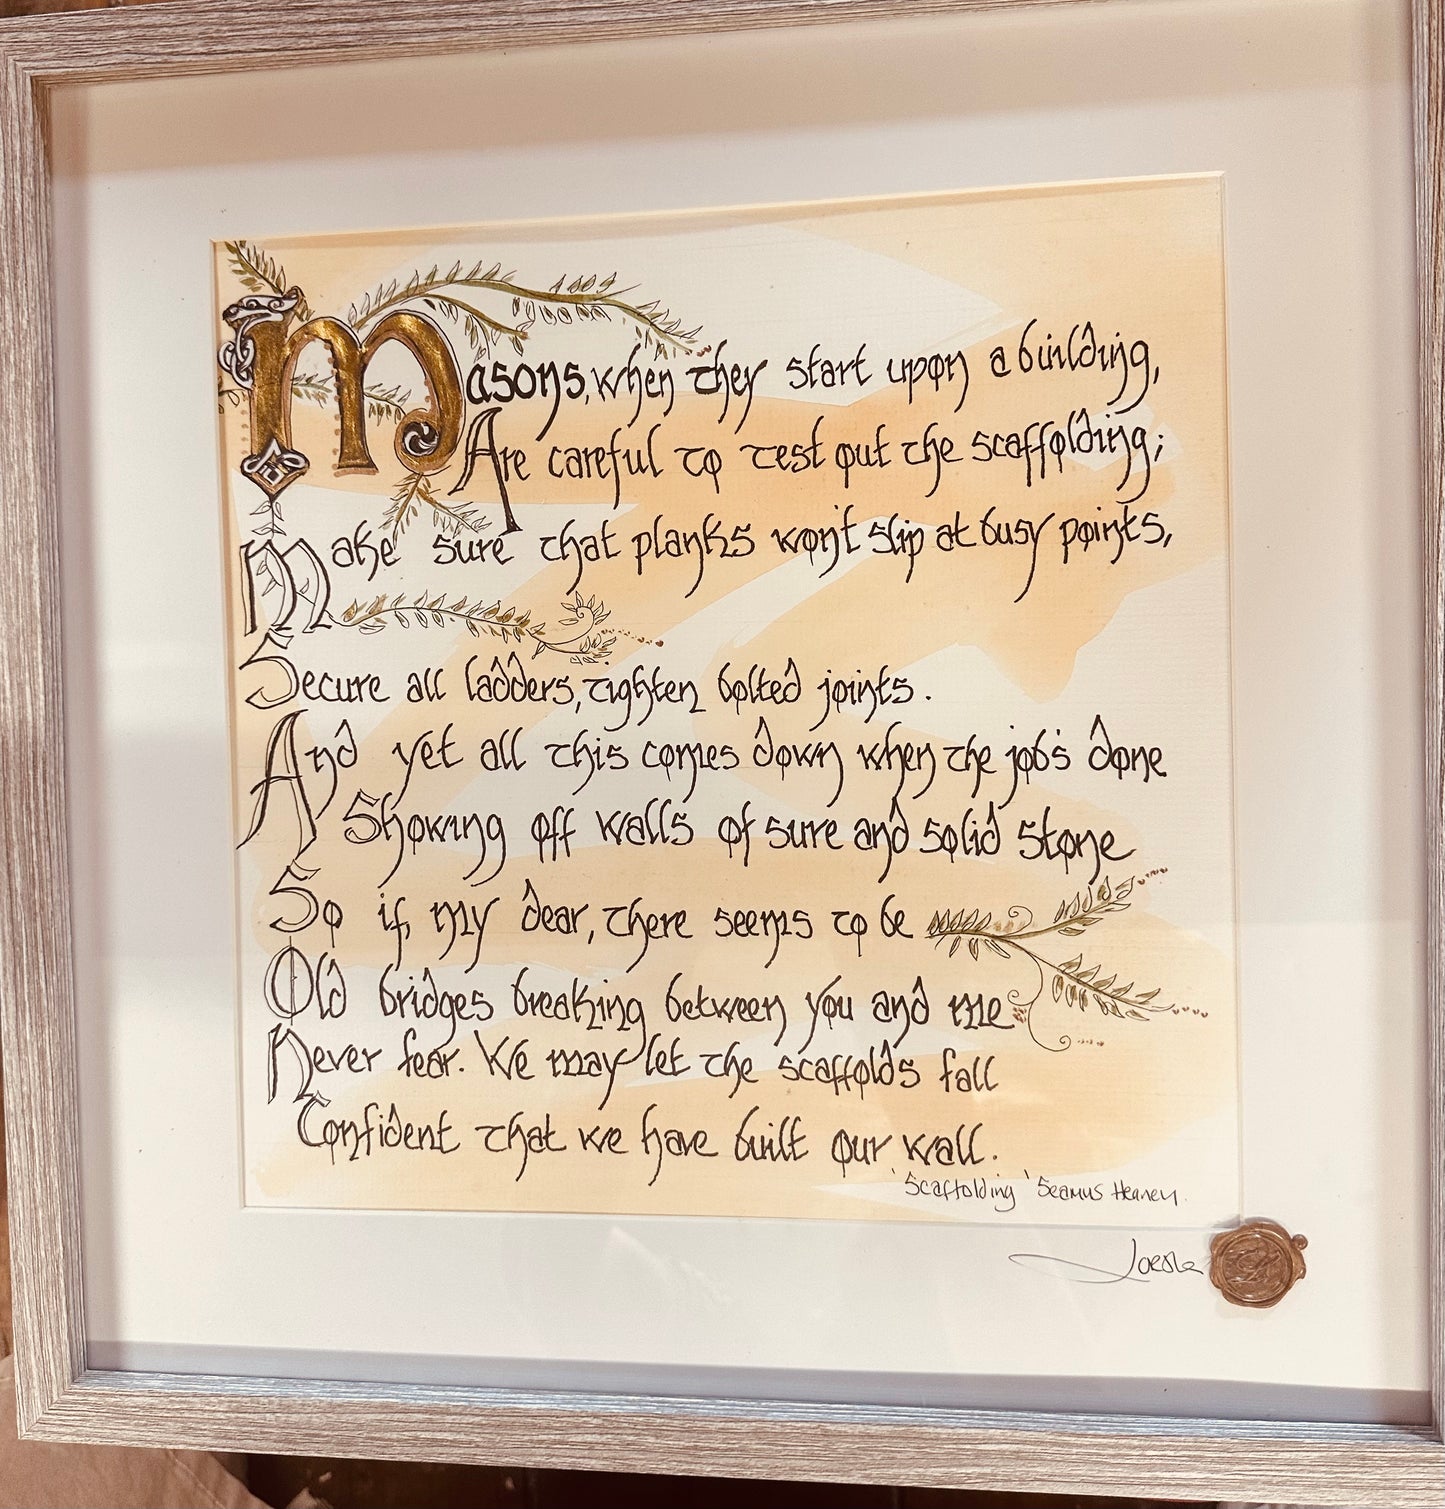 Masons, when they start upon a building,
Are careful to test out the scaffolding;
Make sure that planks won't slip at busy points,
Secure all ladders, tighten bolted joints.
And yet all this comes down when the job's done
Showing off walls of sure and solid stone
So if, my dear, there seems to be
Old bridges breaking between you and me
Never fear. We may let the scaffolds fall
Confident that we have built our wall.
'Scaffolding' Seamus Heaney.